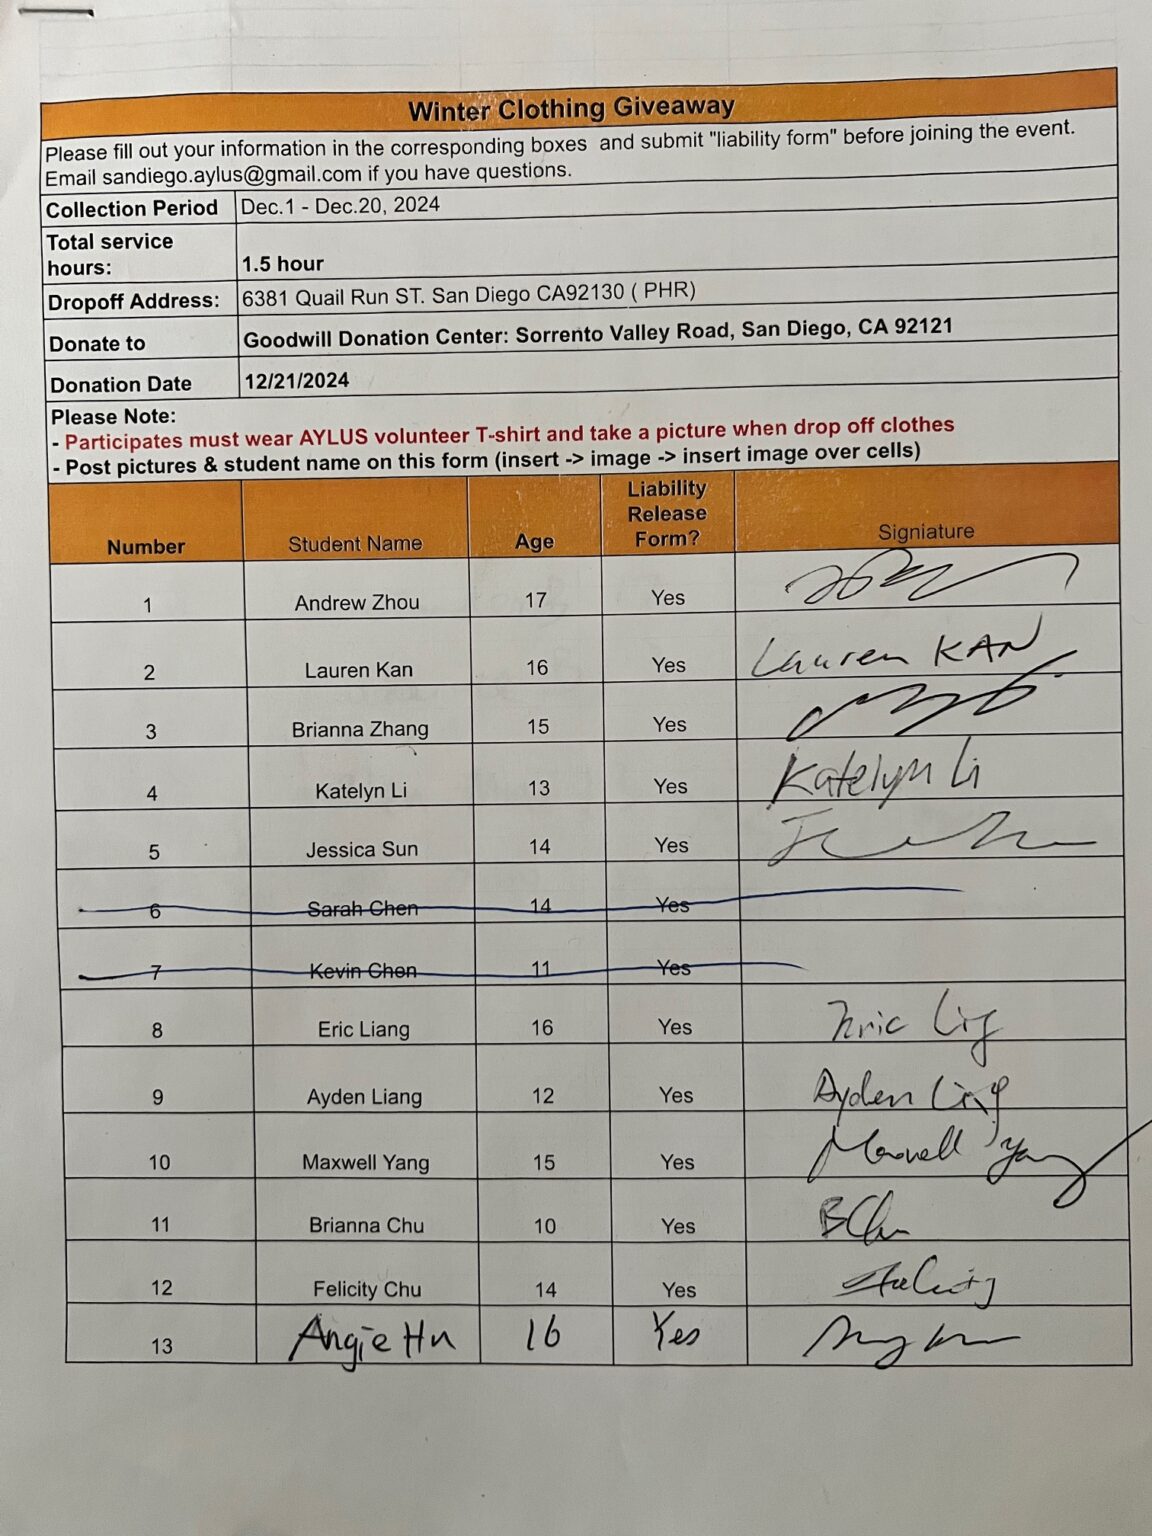 Winter Clothing Giveaway
Please fill out your information in the corresponding boxes and submit "liability form" before joining the event.
Email sandiego.aylus@gmail.com if you have questions.
Collection Period Dec.1 - Dec.20, 2024
Total service hours: 1.5 hour
Dropoff Address: 6381 Quail Run ST. San Diego CA92130 ( PHR)
Donate to Goodwill Donation Center: Sorrento Valley Road, San Diego, CA 92121
Donation Date 12/21/2024
Please Note:
- Participates must wear AYLUS volunteer T-shirt and take a picture when drop off clothes
- Post pictures & student name on this form (insert -> image -> insert image over cells)
Number Student Name Age Liability Release Form? Signiature
1 Andrew Zhou 17 Yes
2 Lauren Kan 16 Yes Lauren KAN
3 Brianna Zhang 15 Yes
4 Katelyn Li 13 Yes Katelyn Li
5 Jessica Sun 14 Yes
6 Sarah Chen 14 Yes
7 Kevin Chen 11 Yes
8 Eric Liang 16 Yes Eric
9 Ayden Liang 12 Yes Ayden
10 Maxwell Yang 15 Yes Maxwell Yang
11 Brianna Chu 10 Yes BChu
12 Felicity Chu 14 Yes Felicity
13 Angie Hu 16 Yes